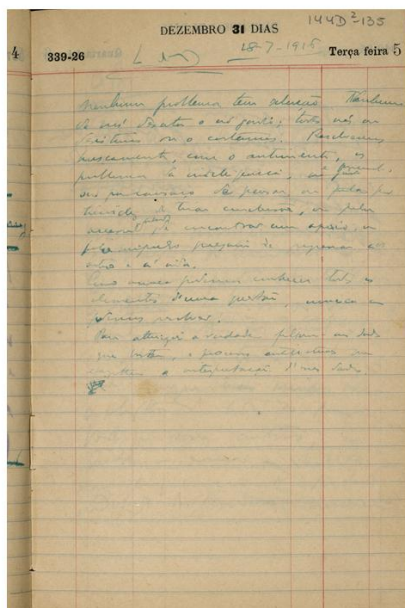 144D²-135
DEZEMBRO 31 DIAS
4 339-26 (L. do D.) 18-7-1916 Terça feira 5
Nenhum problema tem solução. Nenhum
de nós desata o nó gordio; todos nós ou
desistimos ou o cortamos. Resolvemos
bruscamente, com o sentimento, os
problemas da intelligencia, e
ou por cansaço de pensar, ou por
timidez de tirar conclusões, ou pela
de encontrar um apoio, ou
pelo impulso gregario de regressar aos
outros e á vida.
Como nunca podemos conhecer todos os
elementos de uma questão, nunca a
podemos resolver.
Para attingir a verdade faltam-nos dados
que bastem, e processos intellectuaes que
a interpretação d'esses dados